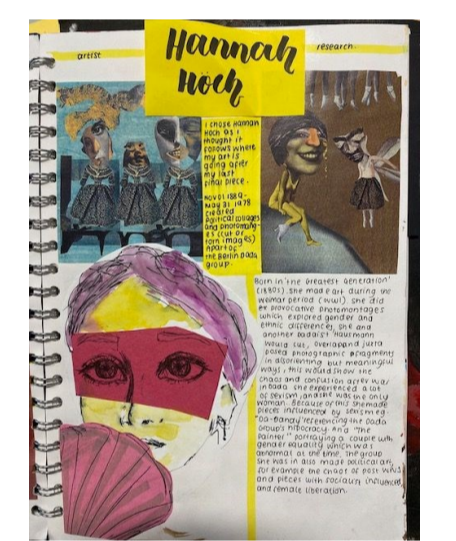 artist
Hannah
Höch
research.
I chose Hannah
Hoch as I
thought it
follows where
my art is
going after
my last
final piece.
Nov 01 1889-
May 31 1978
created
political collages
and photomontag-
es (cut or
torn images)
apart of
the Berlin dada
group.
Born in 'the greatest generation'
(1880s). she made art during the
weimar period (WW1). she did
provocative photomontages
which explored gender and
ethnic differences, she and
another dadaist Hausmann
would cut, overlap and juxta
posed photographic fragments
in disorienting but meaningful
ways, this would show the
chaos and confusion after war
in dada. she experienced a lot
of sexism, and she was the only
woman. Because of this she made
pieces influenced by sexism eg:
"Da-Dandy" referencing the dada
Group's hipocracy. And "The
Painter" portraying a couple with
gender equality which was
abnormal at the time. The group
she was in also made political art,
for example the chaos of post WW1
and pieces with socialism influences
and female liberation.